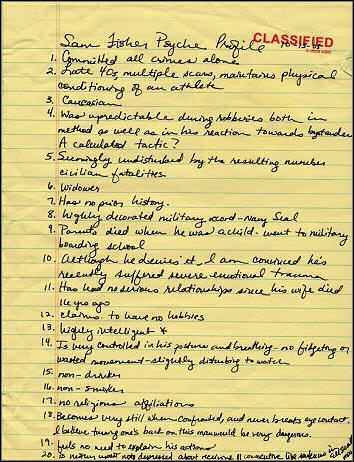 CLASSIFIED
Sam Fisher Psyche Profile 10-15-05
1. Committed all crimes alone
2. Late 40s, multiple scars, maintains physical
conditioning of an athlete
3. Caucasian
4. Was upredictable during robberies both in
method as well as in his reaction towards bystanders
A calculated tactic?
5. Seemingly undisturbed by the resulting number
civilian fatalities
6. Widower
7. Has no prior history.
8. highly decorated military record - Navy Seal
9. Parents died when he was a child - went to military
boarding school
10. Although he denies it, I am convinced he's
recently suffered severe emotional trauma
11. Has had no serious relationships since his wife died
16 yrs ago
12. claims to have no hobbies
13. highly intelligent *
14. Is very controlled in his posture and breathing - no fidgeting or
wasted movement - slightly disturbing to watch
15. non-drinker
16. non-smoker
17. no religious affiliations
18. Becomes very still when confronted, and never breaks eye contact.
I believe turning one's back on this man would be very dangerous.
19. feels no need to explain his actions
20. is neither upset nor depressed about receiving 11 consecutive life sentences in